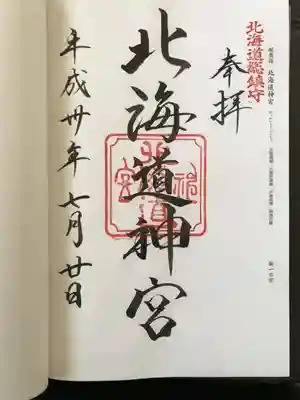 北海道総鎮守
奉拝
北海道神宮
平成卅年七月廿日